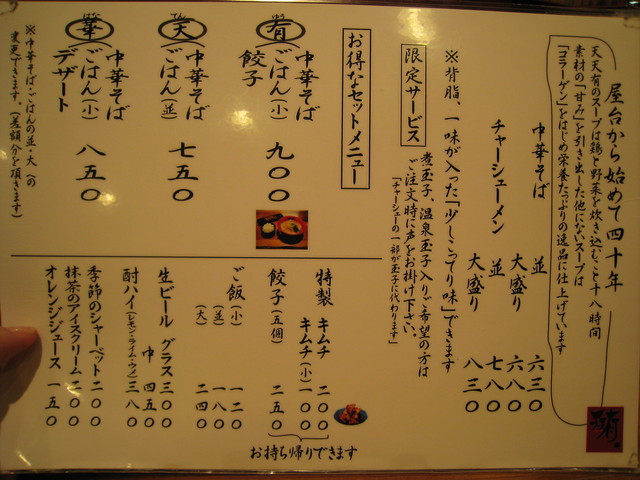 屋台から始めて四十年
天天有のスープは鶏と野菜を炊き込むこと十八時間
素材の「甘み」を引き出した他にないスープは
「コラーゲン」をはじめ栄養たっぷりの逸品に仕上げています
中華そば 並 六三〇
大盛り 六八〇
チャーシューメン 並 七八〇
大盛り 八三〇
※背脂、一味が入った「少しこってり味」できます
限定サービス
煮玉子、温泉玉子入りご希望の方は
ご注文時に声をお掛け下さい。
「チャーシューの一部が玉子に代わります」
お得なセットメニュー
有 ゆう
中華そば
ごはん(小)
餃子
九〇〇
天 てん
中華そば
ごはん(並)
七五〇
華
中華そば
ごはん(小)
デザート
八五〇
※中華そば・ごはんの並・大(の
変更できます。(差額分を頂きます)
特製 キムチ 二〇〇
キムチ(小) 一〇〇
餃子(五個) 二五〇
お持ち帰りできます
ご飯(小) 一二〇
(並) 一八〇
(大) 二四〇
生ビール グラス 三〇〇
中 四五〇
酎ハイ(レモン・ライム・ウメ) 三八〇
季節のシャーベット 二〇〇
抹茶のアイスクリーム 二〇〇
オレンジジュース 一五〇